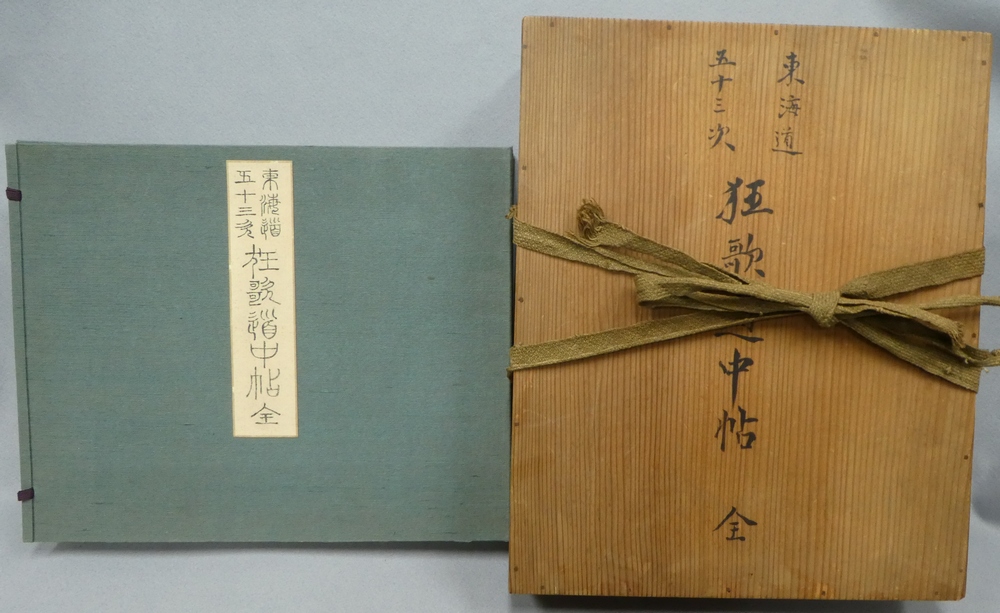 東海道
五十三次
狂歌道中帖 全
東海道
五十三次
狂歌道中帖 全